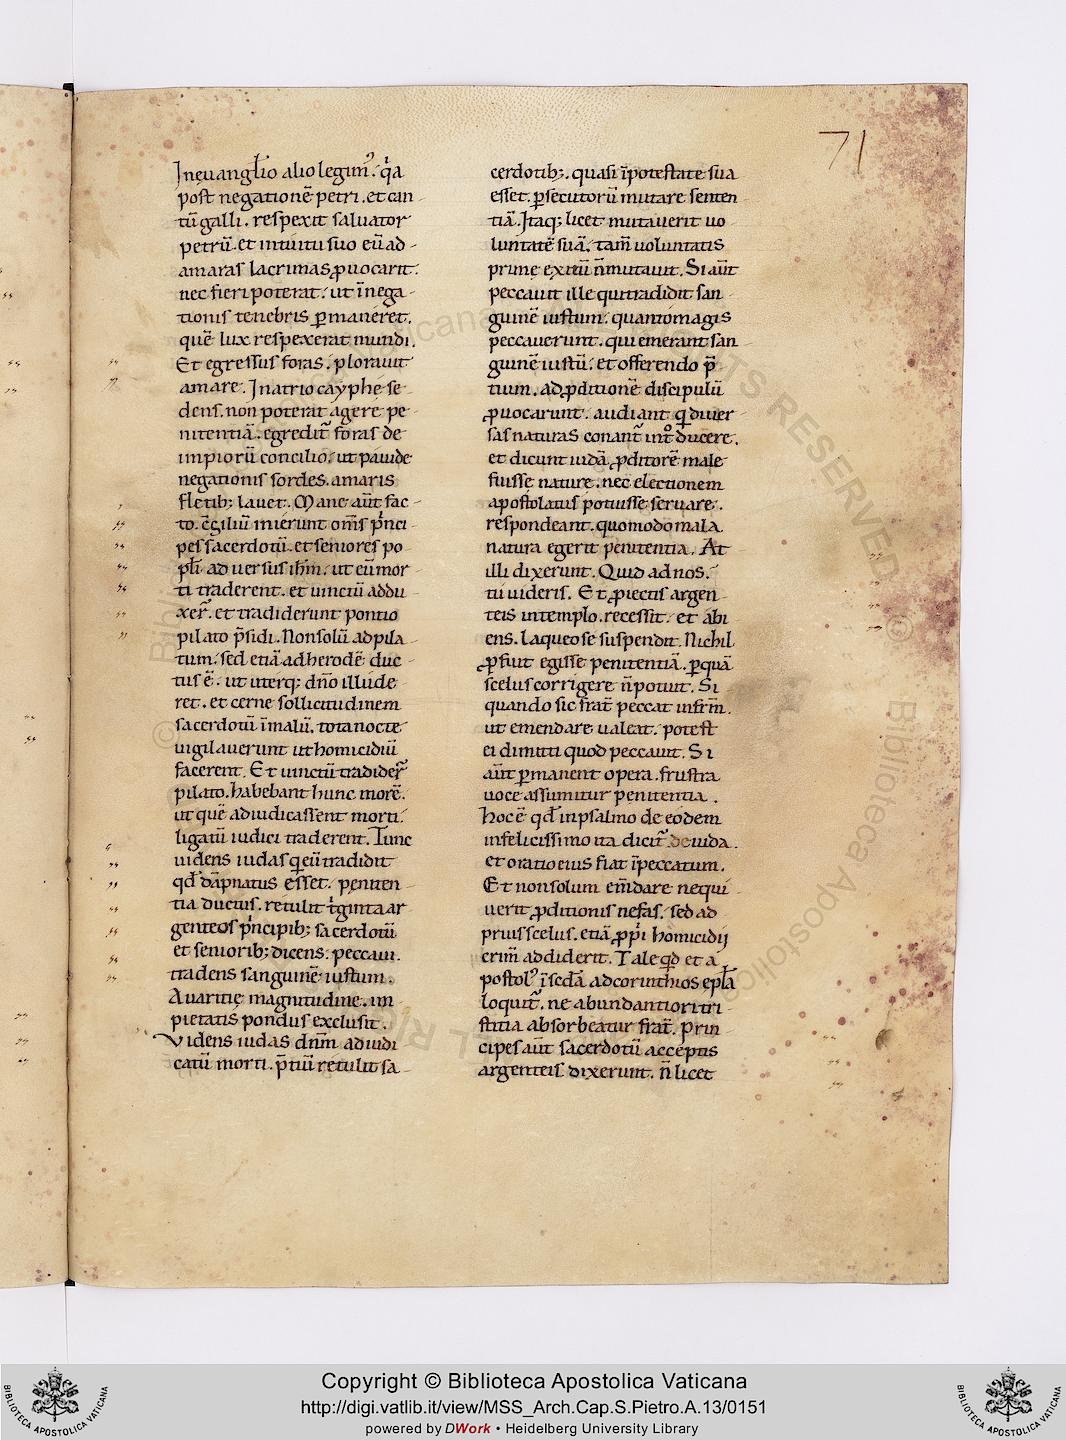 71
In euanḡlio alio legim᾽. q̄a
post negationē petri. et can
tū galli. respexit saluator
petrū. et intuitu suo eū ad
amaras lacrimas ꝓuocarit.
nec fieri poterat. ut ī nega
tionis tenebris ꝑmaneret.
quē lux respexerat mundi.
Et egressus foras. plorauit
amare. In atrio cayphe se
dens. non poterat agere pe
nitentiā. egredit᷑ foras de
impiorū concilio. ut pauide
negationis sordes. amaris
fletib; lauet. Mane aūt fac
to. c̄siliū inierunt om̄s p̄nci
pes sacerdotū. et seniores po
pl̄i aduersus ih̄m. ut eū mor
ti traderent. et uinctū addu
xer᷑. et tradiderunt pontio
pilato p̄sidi. Non solū ad pila
tum. sed etiā ad herodē duc
tus ē. ut uterq; dn̄o illude
ret. et cerne sollicitudinem
sacerdotū ī malū. tota nocte
uigilauerunt ut homicidiū
facerent. Et uinctū tradider᷑
pilato. habebant hunc morē.
ut quē adiudicassent morti.
ligatū iudici traderent. Tunc
uidens iudas q̄ eū tradidit
qd̄ dāpnatus esset. peniten
tia ductus. retulit t̄ginta ar
genteos p̄ncipib; sacerdotū
et seniorib; dicens. peccaui.
tradens sanguinē iustum.
Auaritię magnitudine. im
pietatis pondus exclusit.
Videns iudas dn̄m adiudi
catū morti. p̄tiū retulit sa
cerdotib;. quasi ī potestate sua
esset. ꝑsecutorū mutare senten
tiā. Itaq; licet mutauerit uo
luntatē suā. tam̄ uoluntatis
prime exitū n̄ mutauit. Si aūt
peccauit ille qui tradidit san
guinē iustum. quantomagis
peccauerunt. qui emerant san
guinē iustū. et offerendo p̄
tium. ad ꝓditionē discipulū
ꝓuocarunt. audiant q̄ diuer
sas naturas conant᷑ int᷑ducere.
et dicunt iudā ꝓditorē male
fuisse nature. nec electionem
apostolatus potuisse seruare.
respondeant. quomodo mala
natura egerit penitentia. At
illi dixerunt. Quid ad nos.
tu uideris. Et ꝓiectis argen
teis in templo. recessit. et abi
ens. laqueo se suspendit. Nichil
ꝓfuit egisse penitentiā. ꝑ quā
scelus corrigere n̄ potuit. Si
quando sic frat᷑ peccat in frm̄.
ut emendare ualeat. potest
ei dimitti quod peccauit. Si
aūt ꝑmanent opera. frustra
uoce assumitur penitentia.
hoc ē qd̄ in psalmo de eodem
infelicissimo ita dicit᷑ de iuda.
et oratio eius fiat ī peccatum.
Et non solum em̄dare nequi
uerit ꝓditionis nefas. sed ad
prius scelus. etiā ꝓp̄i homicidij
crim̄ addiderit. Tale qd̄ et a
postol᾽ ī scd̄a ad corinthios epl̄a
loquit᷑. ne abundantiori tri
stitia absorbeatur frat᷑. Prin
cipes aūt sacerdotū acceptis
argenteis dixerunt. n̄ licet
Copyright © Biblioteca Apostolica Vaticana
http://digi.vatlib.it/view/MSS_Arch.Cap.S.Pietro.A.13/0151
powered by DWork • Heidelberg University Library